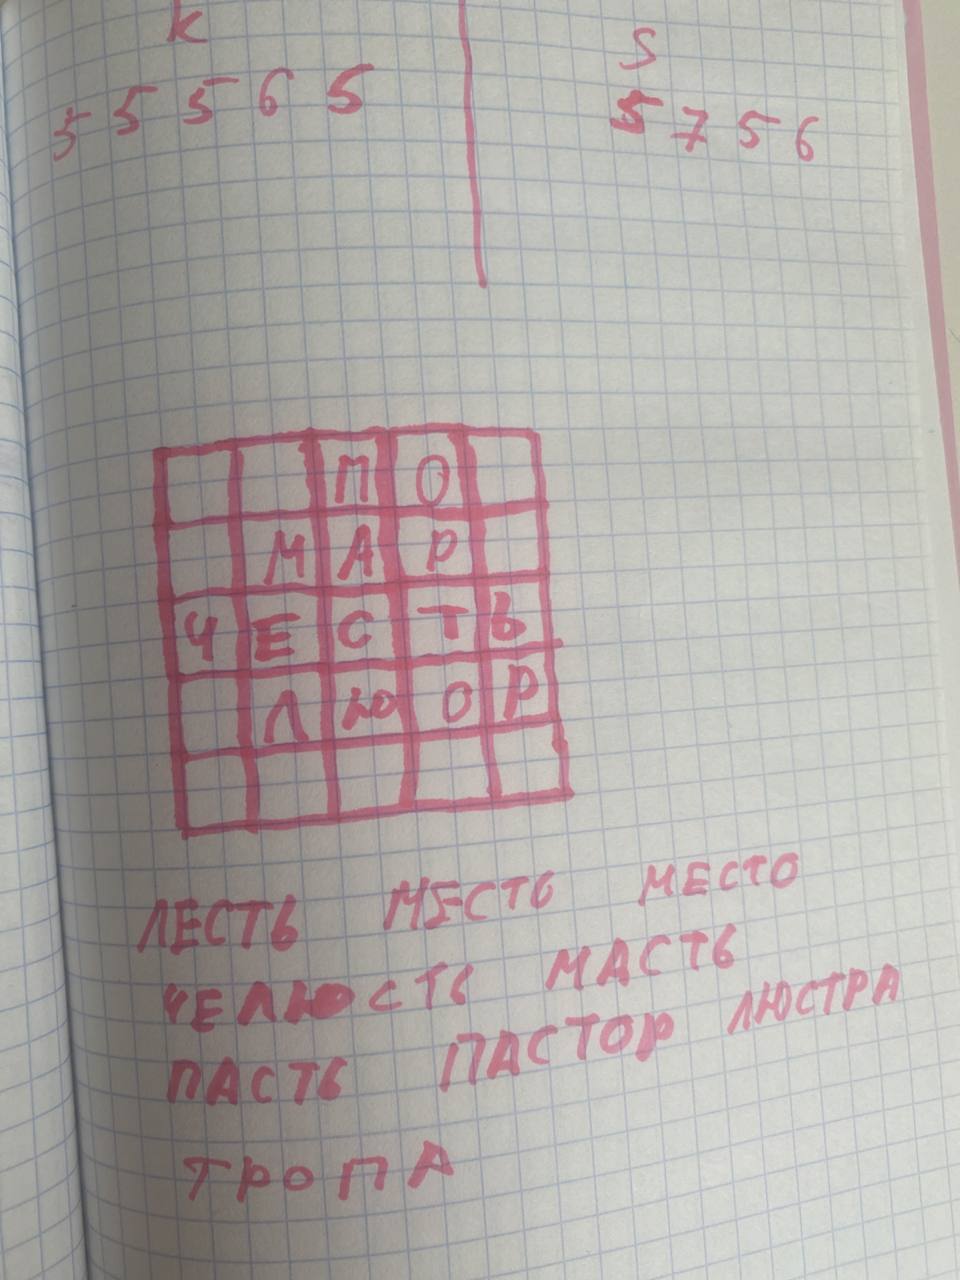 K S
5 5 5 6 5 5 7 5 6
П О
М А Р
Ч Е С Т Ь
Л Ю О Р
ЛЕСТЬ МЕСТЬ МЕСТО
ЧЕЛЮСТЬ МАСТЬ
ПАСТЬ ПАСТОР ЛЮСТРА
ТРОПА